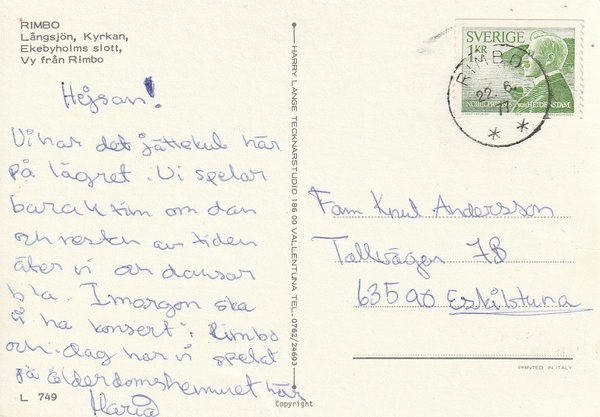 RIMBO
Långsjön, Kyrkan,
Ekebyholms slott,
Vy från Rimbo
Hejsan!
Vi har det jättekul här
på lägret. Vi spelar
bara 4 tim om dan
och resten av tiden
äter vi och dansar
bla. Imorgon ska
vi ha konsert i Rimbo
och idag har vi spelat
på ålderdomshemmet här
Maria
L 749
HARRY LANGE TECKNARSTUDIO 186 00 VALLENTUNA TEL. 0762/24693
Copyright
SVERIGE
1KR
NOBELPRIS 1916 VON HEIDENSTAM
RIMBO
22. 6.
77
Fam Knut Andersson
Tallvägen 7B
63590 Eskilstuna
PRINTED IN ITALY